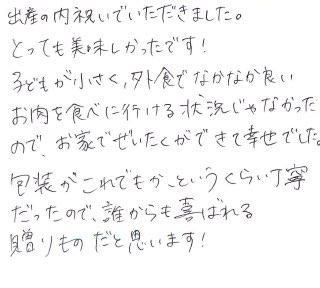 出産の内祝いでいただきました。
とっても美味しかったです!
子どもが小さく,外食でなかなか良い
お肉を食べに行ける状況じゃなかった
ので、お家でぜいたくができて幸せでした。
包装がこれでもか、というくらい丁寧
だったので、誰からも喜ばれる
贈りものだと思います!